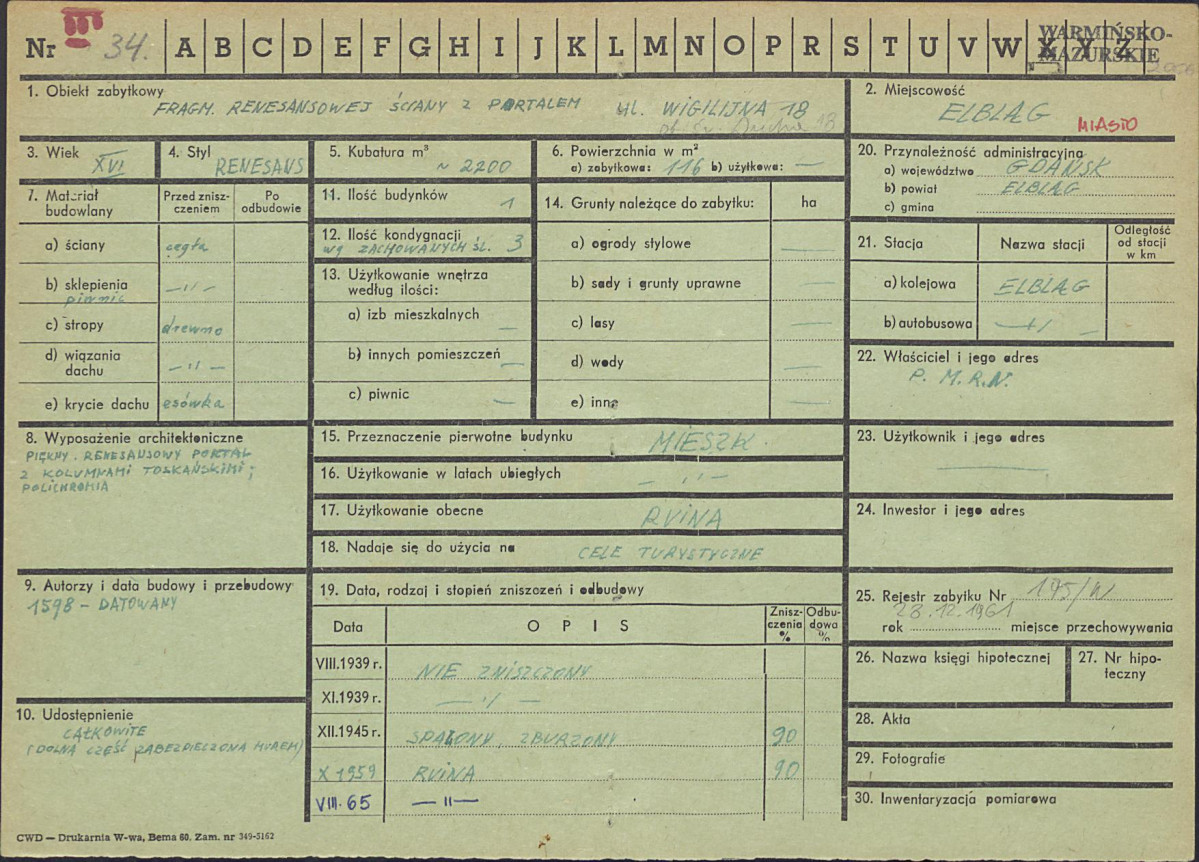 III
Nr 34. A B C D E F G H I J K L M N O P R S T U V W X Y Z
WARMIŃSKO-
MAZURSKIE
1. Obiekt zabytkowy
FRAGM. RENESANSOWEJ ŚCIANY Z PORTALEM ul. WIGILIJNA 18
ob. Św. Ducha 18
2. Miejscowość
ELBLĄG
MIASTO
3. Wiek
XVI
4. Styl
RENESANS
5. Kubatura m³
~ 2200
6. Powierzchnia w m²
a) zabytkowa: 116 b) użytkowa: —
20. Przynależność administracyjna
a) województwo GDAŃSK
b) powiat ELBLĄG
c) gmina
7. Materiał budowlany
Przed zniszczeniem
Po odbudowie
a) ściany cegła
b) sklepienia —〃—
piwnic
c) stropy drewno
d) wiązania dachu —〃—
e) krycie dachu esówka
11. Ilość budynków 1
12. Ilość kondygnacji
wg ZACHOWANYCH ŚL. 3
13. Użytkowanie wnętrza
według ilości:
a) izb mieszkalnych —
b) innych pomieszczeń —
c) piwnic —
14. Grunty należące do zabytku: ha
a) ogrody stylowe —
b) sady i grunty uprawne —
c) lasy —
d) wody —
e) inne —
21. Stacja
Nazwa stacji
Odległość od stacji w km
a) kolejowa ELBLĄG
b) autobusowa —〃—
22. Właściciel i jego adres
P. M.R.N.
8. Wyposażenie architektoniczne
PIĘKNY RENESANSOWY PORTAL
Z KOLUMNAMI TOSKAŃSKIMI;
POLICHROMIA
15. Przeznaczenie pierwotne budynku MIESZK.
16. Użytkowanie w latach ubiegłych —〃—
17. Użytkowanie obecne RUINA
18. Nadaje się do użycia na CELE TURYSTYCZNE
23. Użytkownik i jego adres
—
24. Inwestor i jego adres
9. Autorzy i data budowy i przebudowy
1598 - DATOWANY
19. Data, rodzaj i stopień zniszczeń i odbudowy
Data
OPIS
Zniszczenia %
Odbudowa %
VIII.1939 r. NIE ZNISZCZONY
XI.1939 r. —〃—
XII.1945 r. SPALONY, ZBURZONY 90
X 1959 RUINA 90
VIII.65 —〃—
25. Rejestr zabytku Nr 175/W
28.12.1961
rok miejsce przechowywania
26. Nazwa księgi hipotecznej
27. Nr hipoteczny
10. Udostępnienie
CAŁKOWITE
(DOLNA CZĘŚĆ ZABEZPIECZONA MUREM)
28. Akta
29. Fotografie
30. Inwentaryzacja pomiarowa
CWD — Drukarnia W-wa, Bema 60. Zam. nr 349-5162